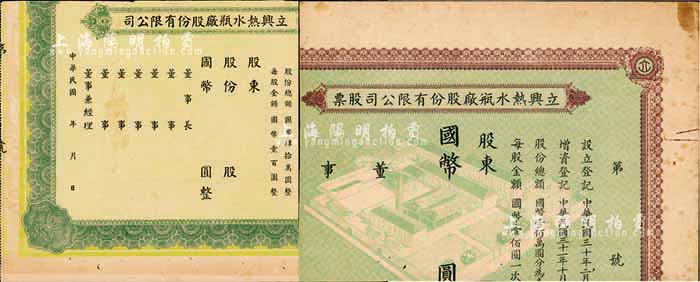 立興熱水瓶廠股份有限公司
股份總額 國幣肆拾萬圓整
每股金額 國幣壹百圓整
股東
股份 股
國幣 圓整
董事長
董事
董事
董事
董事
董事兼經理
中華民國 年 月 日
第
號
立興熱水瓶廠股份有限公司股票
第 號
設立登記 中華民國三十年二月
增資登記 中華民國三十一年十月
股份總額 國幣壹佰萬圓分為
每股金額 國幣壹佰圓一次
股東
國幣 圓
董事
上海陽明拍賣
yangmingauction.com
上海陽明拍賣
yangmingauction.com